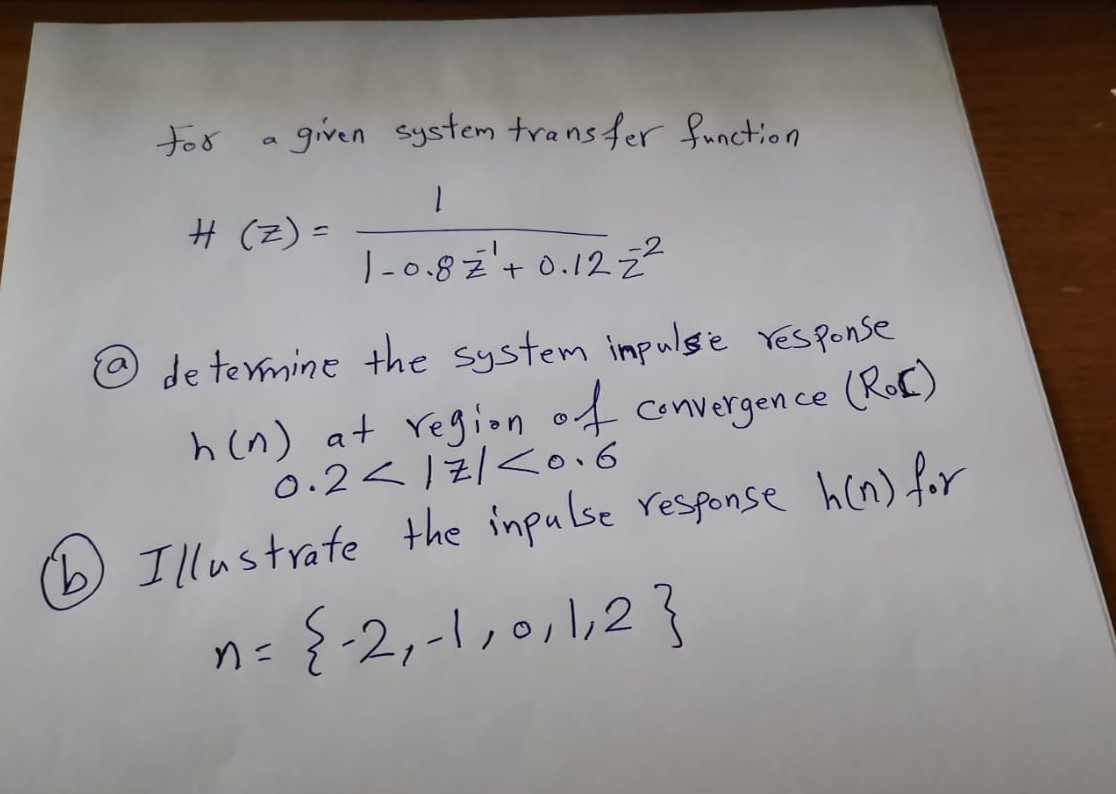 For a given system transfer function
H (Z) = 1 / 1-0.8 z⁻¹ + 0.12 z⁻²
(a) determine the system impulse response
h(n) at region of convergence (RoC)
0.2 < |z| < 0.6
(b) Illustrate the inpulse response h(n) for
n = {-2, -1, 0, 1, 2}